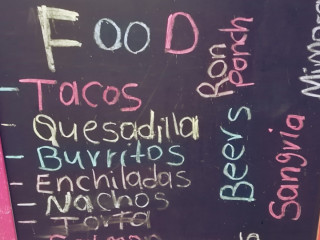 FOOD
- Tacos
- Quesadilla
- Burritos
- Enchiladas
- Nachos
- Torta
Ron Ponch
Beers
Sangria